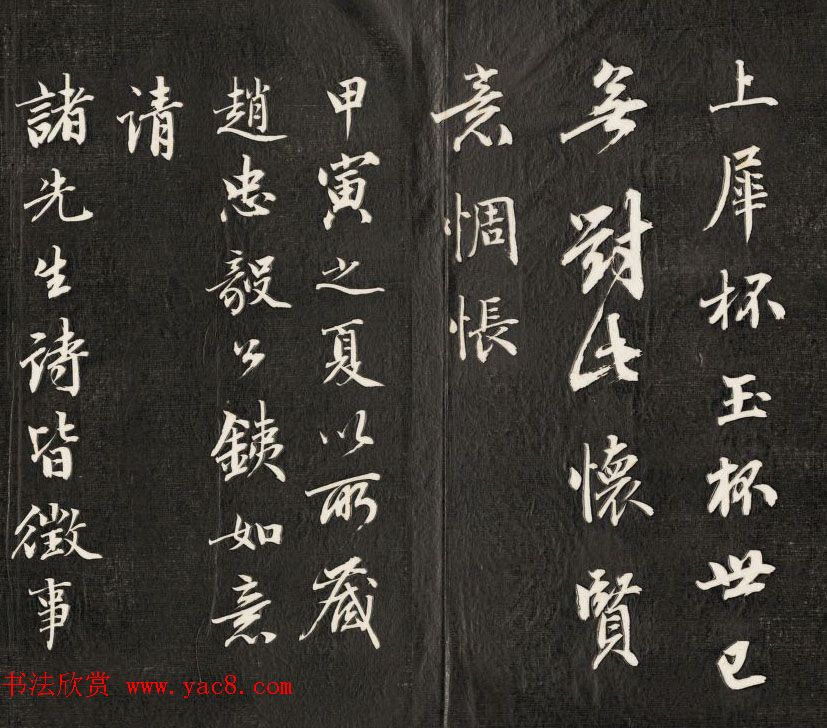 上犀杯玉杯世已
無對此懷賢
意惆悵
甲寅之夏以所藏
趙忠毅公鐵如意
请
諸先生詩皆徵事
书法欣赏 www.yac8.com